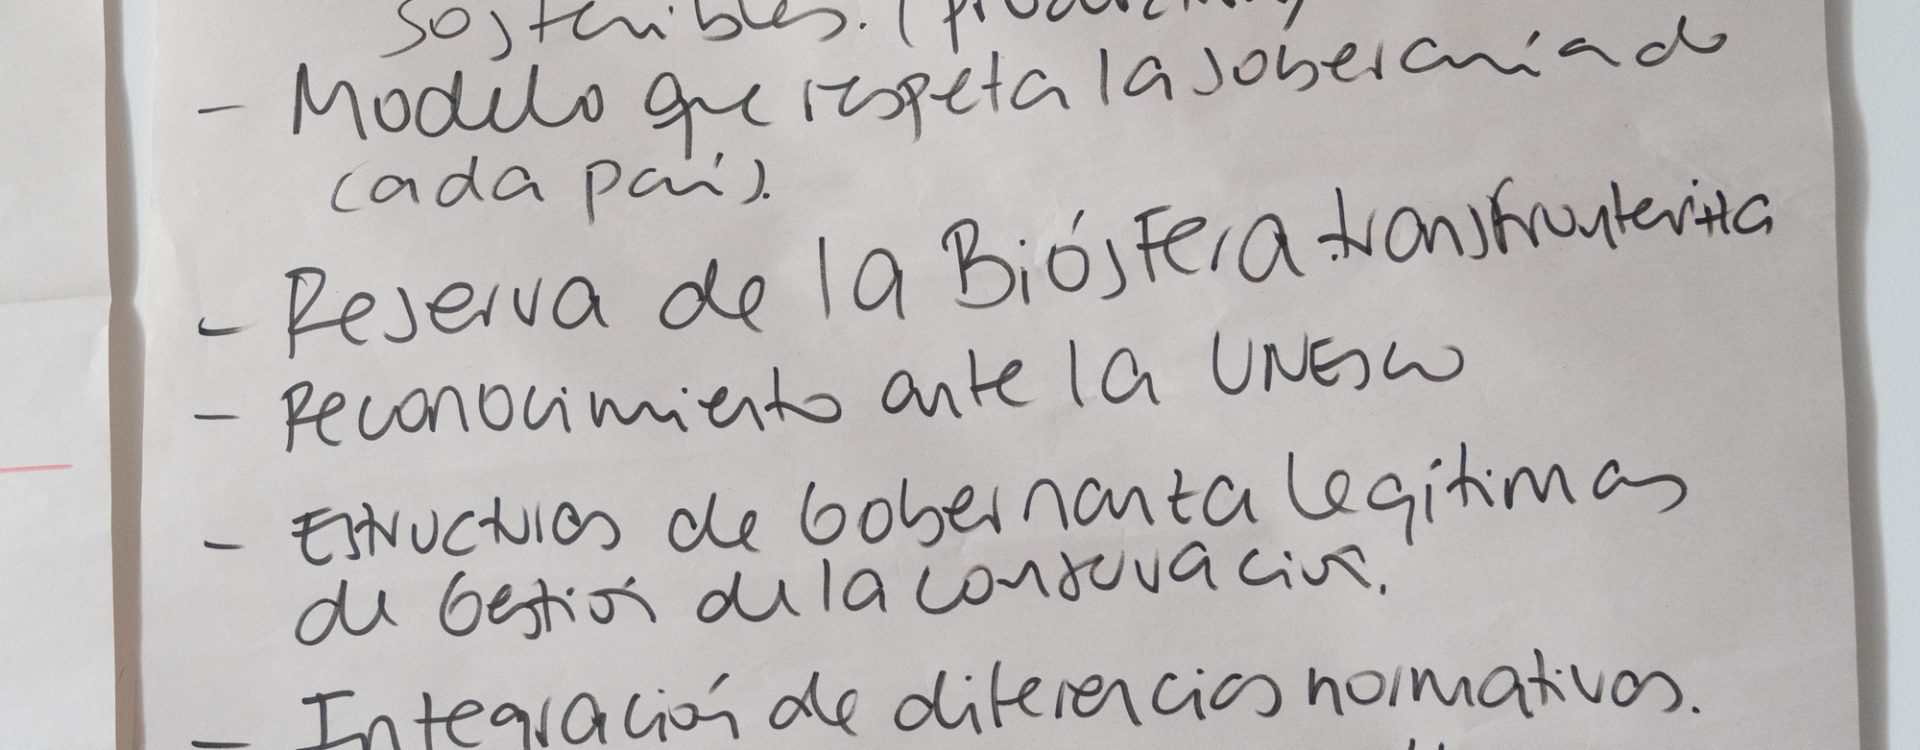 sostenibles. (
- Modelo que respeta la soberanía de
cada país.
- Reserva de la Biósfera transfronteriza
- Reconocimiento ante la UNESCO
- Estructuras de Gobernanza legítimas
de Gestión de la conservación.
- Integración de diferencias normativas.